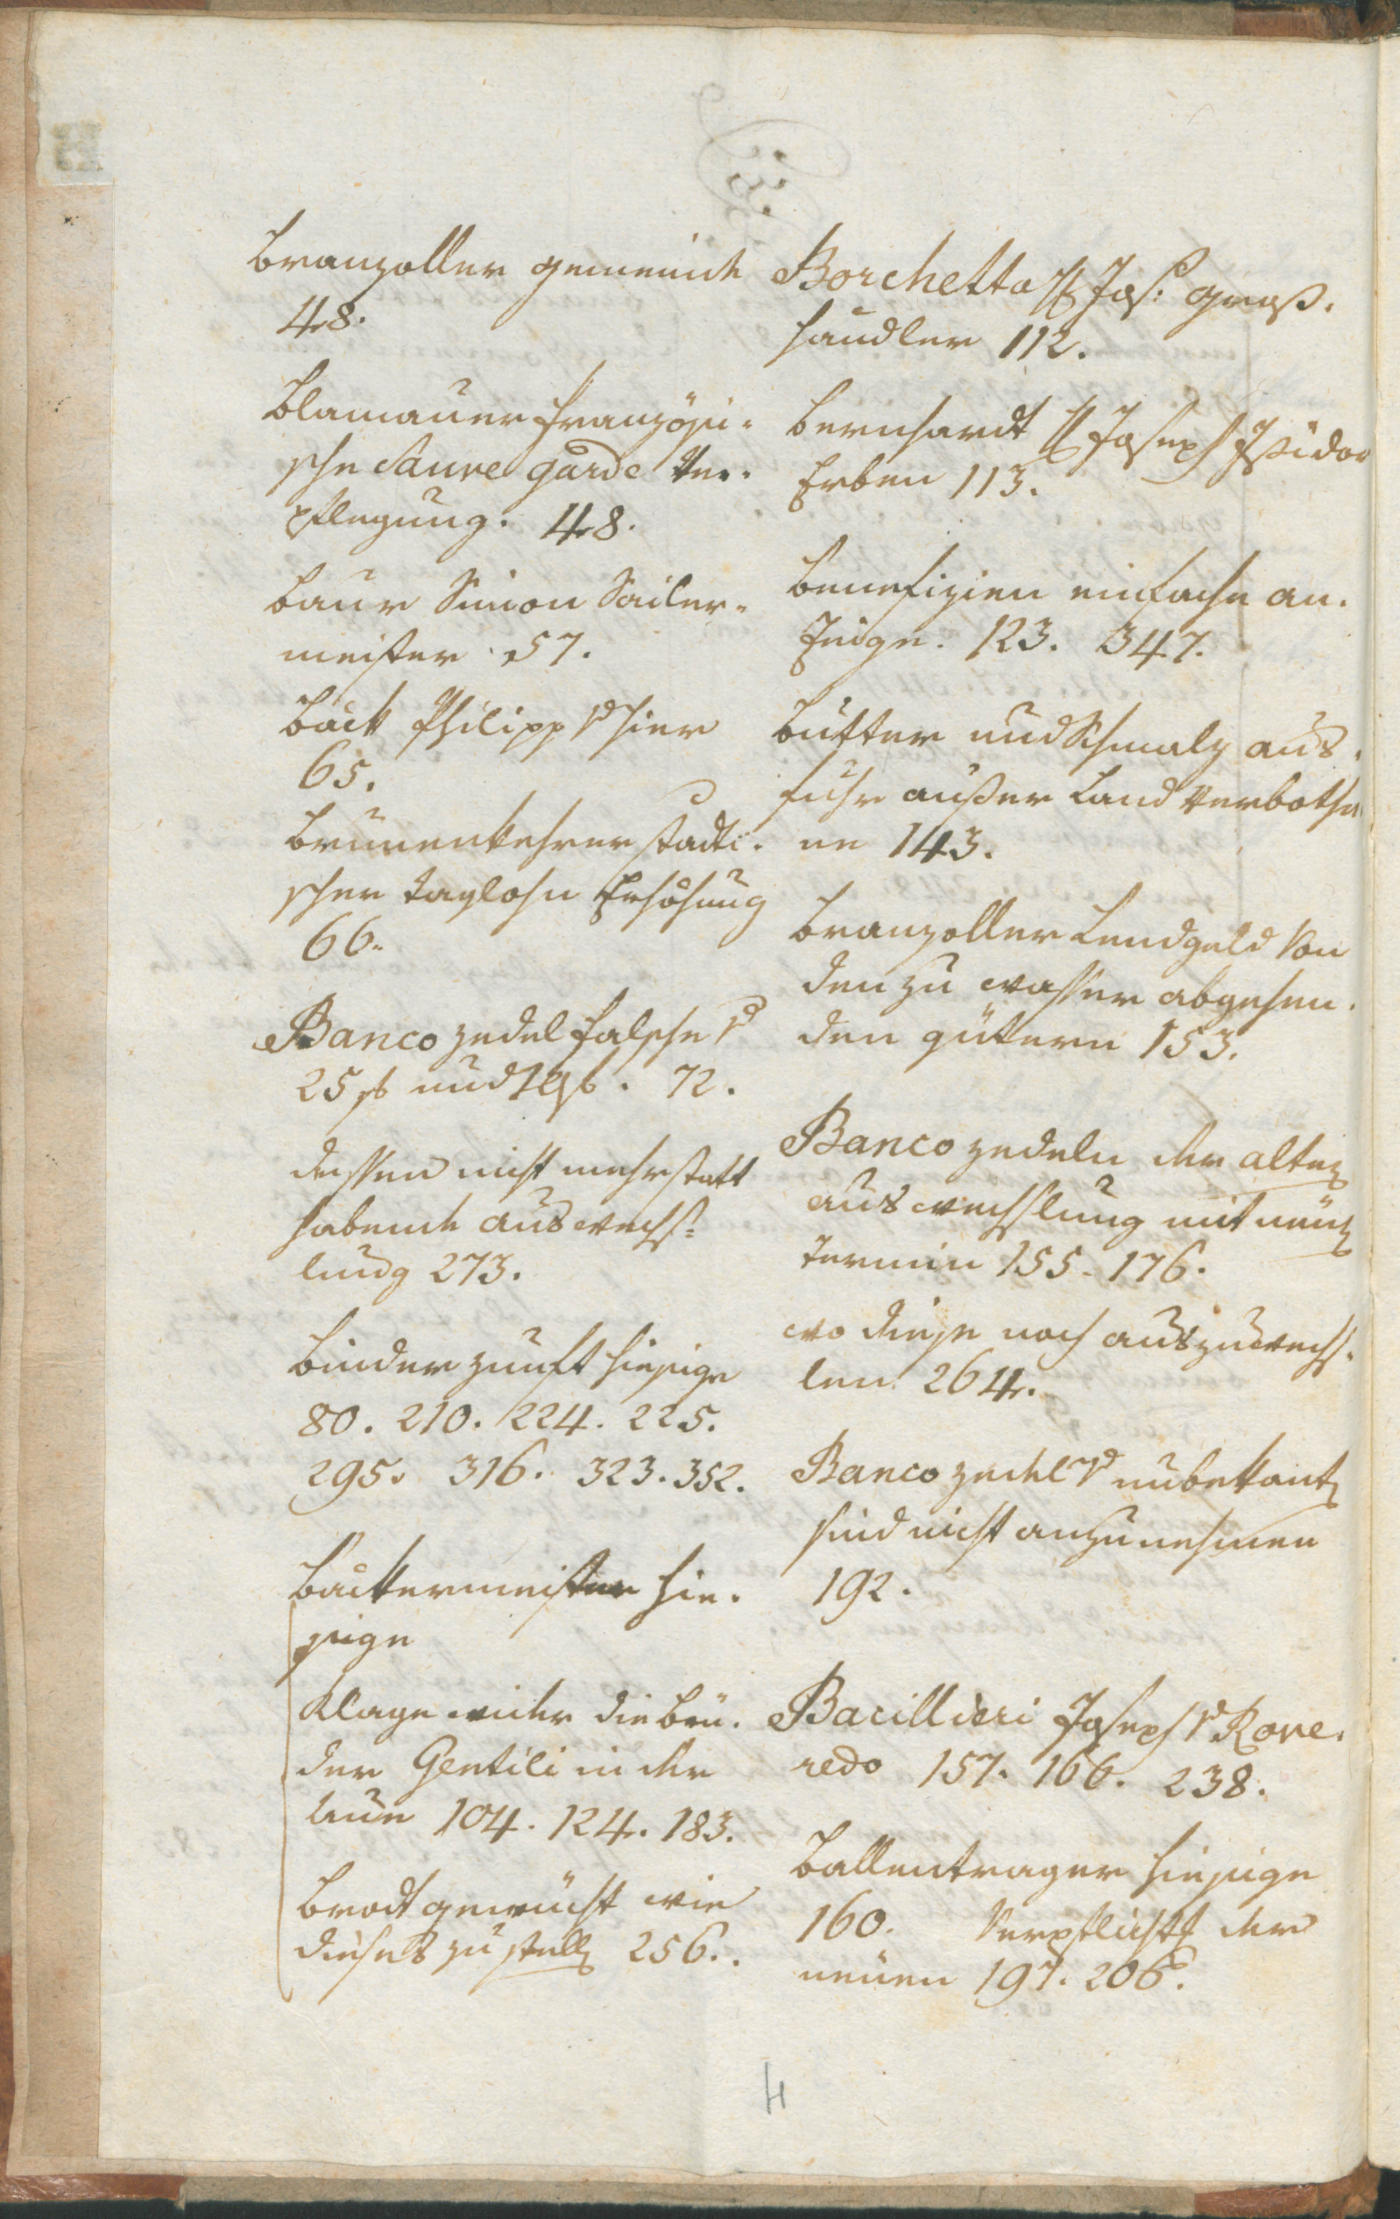 Branzoller gemeinde
48.
Blamauer französi-
sche Sauve garde Ver-
pflegung. 48.
Baur Simon Sailer-
meister 57.
Back Philipp hier
65.
Brunenkehrer stadti-
scher Taglohn Erhöhung
66.
Banco zedel falsche
25 f und 72.
dessen nicht mehr statt
habende auswechs-
lung 273.
Binder zunft hiesige
80. 210. 224. 225.
295. 316. 323. 352.
Backermeister hie-
sige
Klage wider die Brü-
der Gentili in der
104. 124. 183.
Brodt gewicht wie
dieses zu stellen 256.
Borchetta Jos: Gross-
handler 112.
Bernhardt Joseph Isidor
Erben 113.
Benefizien einfache an-
zeige. 123. 347.
Butter und Schmalz aus-
fuhr ausser Land verbothe-
ne 143.
Branzoller Lendgeld von
den zu wasser abgehen-
den gütern 153.
Banco zedeln der alten
auswechslung mit neuen
Termin 155. 176.
wo diese noch auszuwechs-
len 264.
Banco zedel unbekante
sind nicht anzunehmen
192.
Bacillieri Joseph Rove-
redo 157. 166. 238.
Ballentrager hiesige
160. Verpflicht der
neuen 197. 206.
4